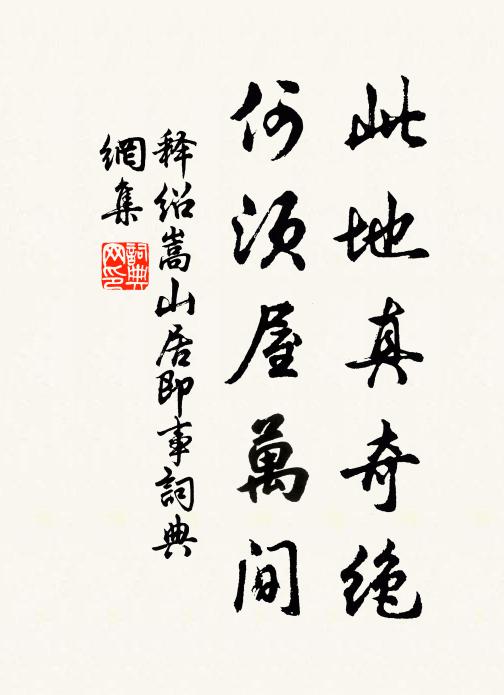 此地真奇绝
何须屋萬间
释绍嵩山居即事詞典
網集
詞典网印